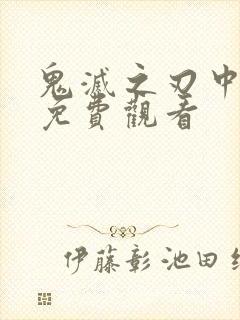 鬼滅之刃中
免費觀看
伊藤彰池田